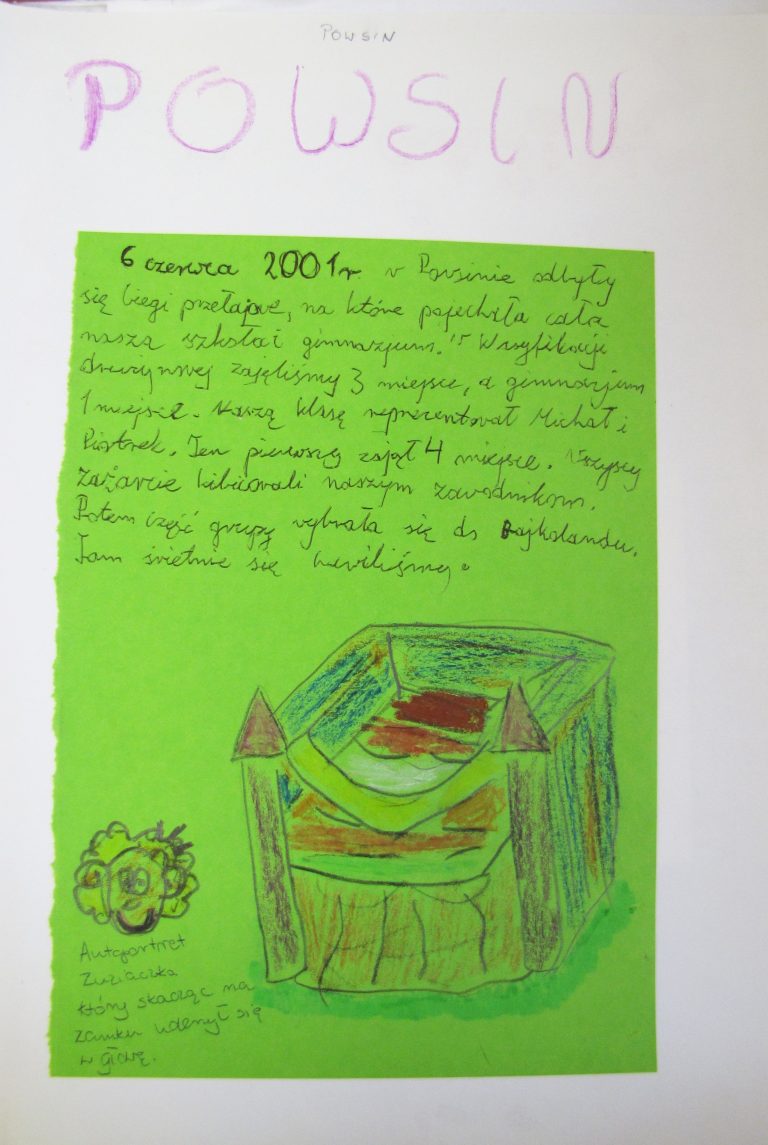 POWSIN
POWSIN
6 czerwca 2001r w Powsinie odbyły
się biegi przełajowe, na które pojechała cała
nasza szkoła i gimnazjum. W
drużynowej zajęliśmy 3 miejsce, a gimnazjum
1 miejsce. Naszą klasę reprezentował Michał i
Piotrek. Ten pierwszy zajął 4 miejsce. Wszyscy
zażarcie kibicowali naszym zawodnikom.
Potem część grupy wybrała się do Bajkolandu.
Tam świetnie się bawiliśmy.
Autoportret
Zuziaczka
który skacząc na
zamku uderzył się
w głowę.